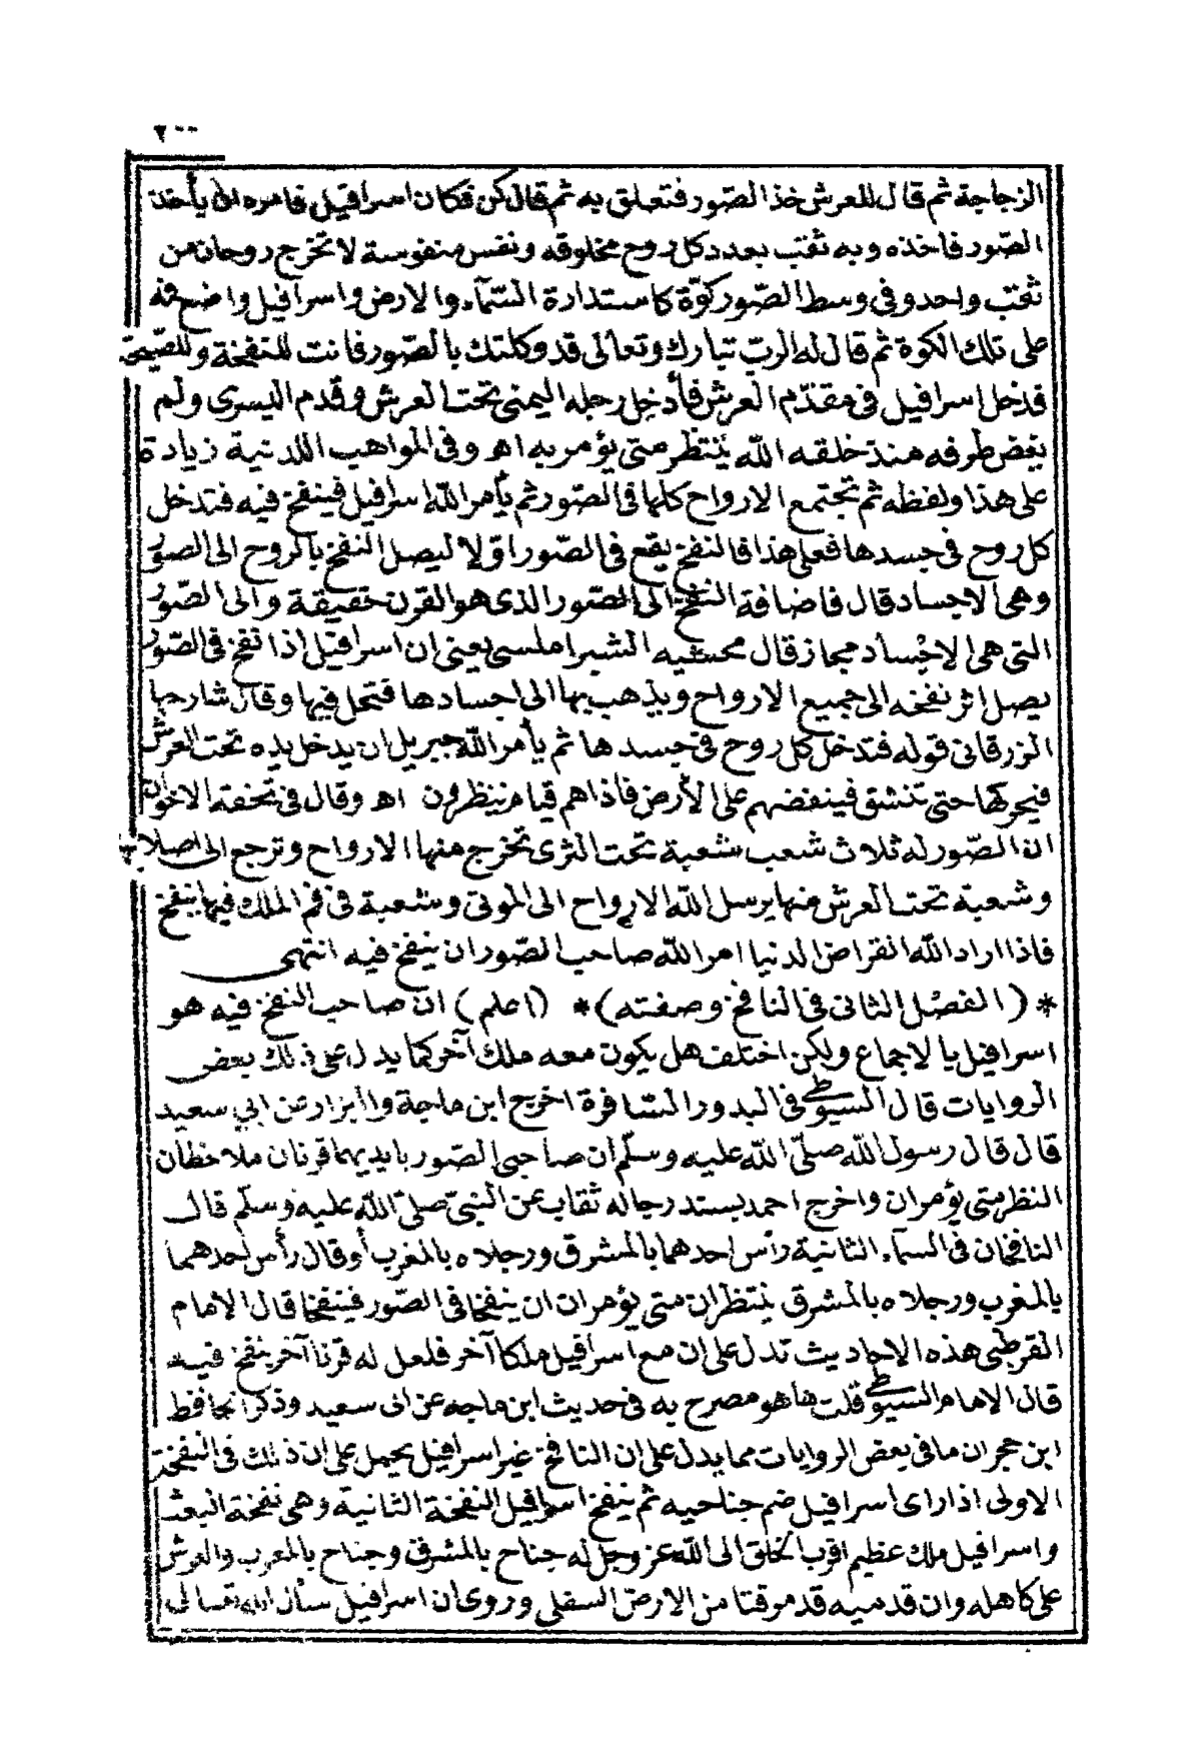 ٢٠٠
الزجاجة ثم قال للعرش خذ الصّور فتعلق به ثم قال كن فكان اسرافيل فامره ان يأخذ
الصّور فاخذه وبه ثقب بعدد كل روح مخلوقه ونفس منفوسة لا تخرج روحان من
ثقب واحد وفى وسط الصّور كوّة كاستدارة السّمآء والارض واسرافيل واضع فمه
على تلك الكوة ثم قال له الربّ تبارك وتعالى قد وكلتك بالصّور فانت للنفخة وللصّيحة
فدخل اسرافيل فى مقدّم العرش فأدخل رجله اليمنى تحت العرش وقدم اليسرى ولم
يغض طرفه منذ خلقه اللّه ينتظر متى يؤمر به اهـ وفى المواهب اللدنية زيادة
على هذا ولفظه ثم تجتمع الارواح كلها فى الصّور ثم يأمر اللّه اسرافيل فينفخ فيه فتدخل
كل روح فى جسدها فعلى هذا فالنفخ يقع فى الصّور اوّلا ليصل النفخ بالروح الى الصور
وهى الاجساد قال فاضافة النفخ الى الصّور الذى هو القرن حقيقة والى الصّور
التى هى الاجساد مجاز قال محشيه الشبراملسى يعنى ان اسرافيل اذا نفخ فى الصّور
يصل اثر نفخه الى جميع الارواح ويذهب بها الى اجسادها فتحل فيها وقال شارحها
الزرقانى قوله فتدخل كل روح فى جسدها ثم يأمر اللّه جبريل ان يدخل يده تحت العرش
فيحركها حتى تنشق فينفضهم على الأرض فاذا هم قيام ينظرون اهـ وقال فى تحفة الاخوان
ان الصّور له ثلاث شعب شعبة تحت الثرى تخرج منها الارواح وترجع الى اصلابها
وشعبة تحت العرش منها يرسل اللّه الارواح الى الموتى وشعبة فى فم الملك فيها ينفخ
فاذا اراد اللّه انقراض الدنيا امر اللّه صاحب الصّور ان ينفخ فيه انتهى
* (الفصل الثانى فى النافخ وصفته) * (اعلم) ان صاحب النفخ فيه هو
اسرافيل بالاجماع ولكن اختلف هل يكون معه ملك آخر كما يدل على ذلك بعض
الروايات قال السّيوطى فى البدور السّافرة اخرج ابن ماجة والبزار عن ابى سعيد
قال قال رسول اللّه صلّى اللّه عليه وسلّم ان صاحبى الصّور بايديهما قرنان ملاحظان
النظر متى يؤمران واخرج احمد بسند رجاله ثقاب عن النبىّ صلّى اللّه عليه وسلّم قال
النافخان فى السمآء الثانية رأس احدهما بالمشرق ورجلاه بالمغرب أو قال رأس احدهما
بالمغرب ورجلاه بالمشرق ينتظران متى يؤمران ان ينفخا فى الصّور فينفخا قال الامام
القرطبى هذه الاحاديث تدل على ان مع اسرافيل ملكا آخر فلعل له قرنا آخر ينفخ فيه
قال الامام السّيوطى قلت ها هو مصرح به فى حديث ابن ماجه عن ابى سعيد وذكر الحافظ
ابن حجر ان ما فى بعض الروايات مما يدل على ان النافخ غير اسرافيل يحمل على ان ذلك فى النفخة
الاولى اذا راى اسرافيل ضم جناحيه ثم ينفخ اسرافيل النفخة الثانية وهى نفخة البعث
واسرافيل ملك عظيم اقرب الخلق الى اللّه عز وجل له جناح بالمشرق وجناح بالمغرب والعرش
على كاهله وان قدميه قد مرقتا من الارض السفلى وروى ان اسرافيل سأل اللّه تعالى